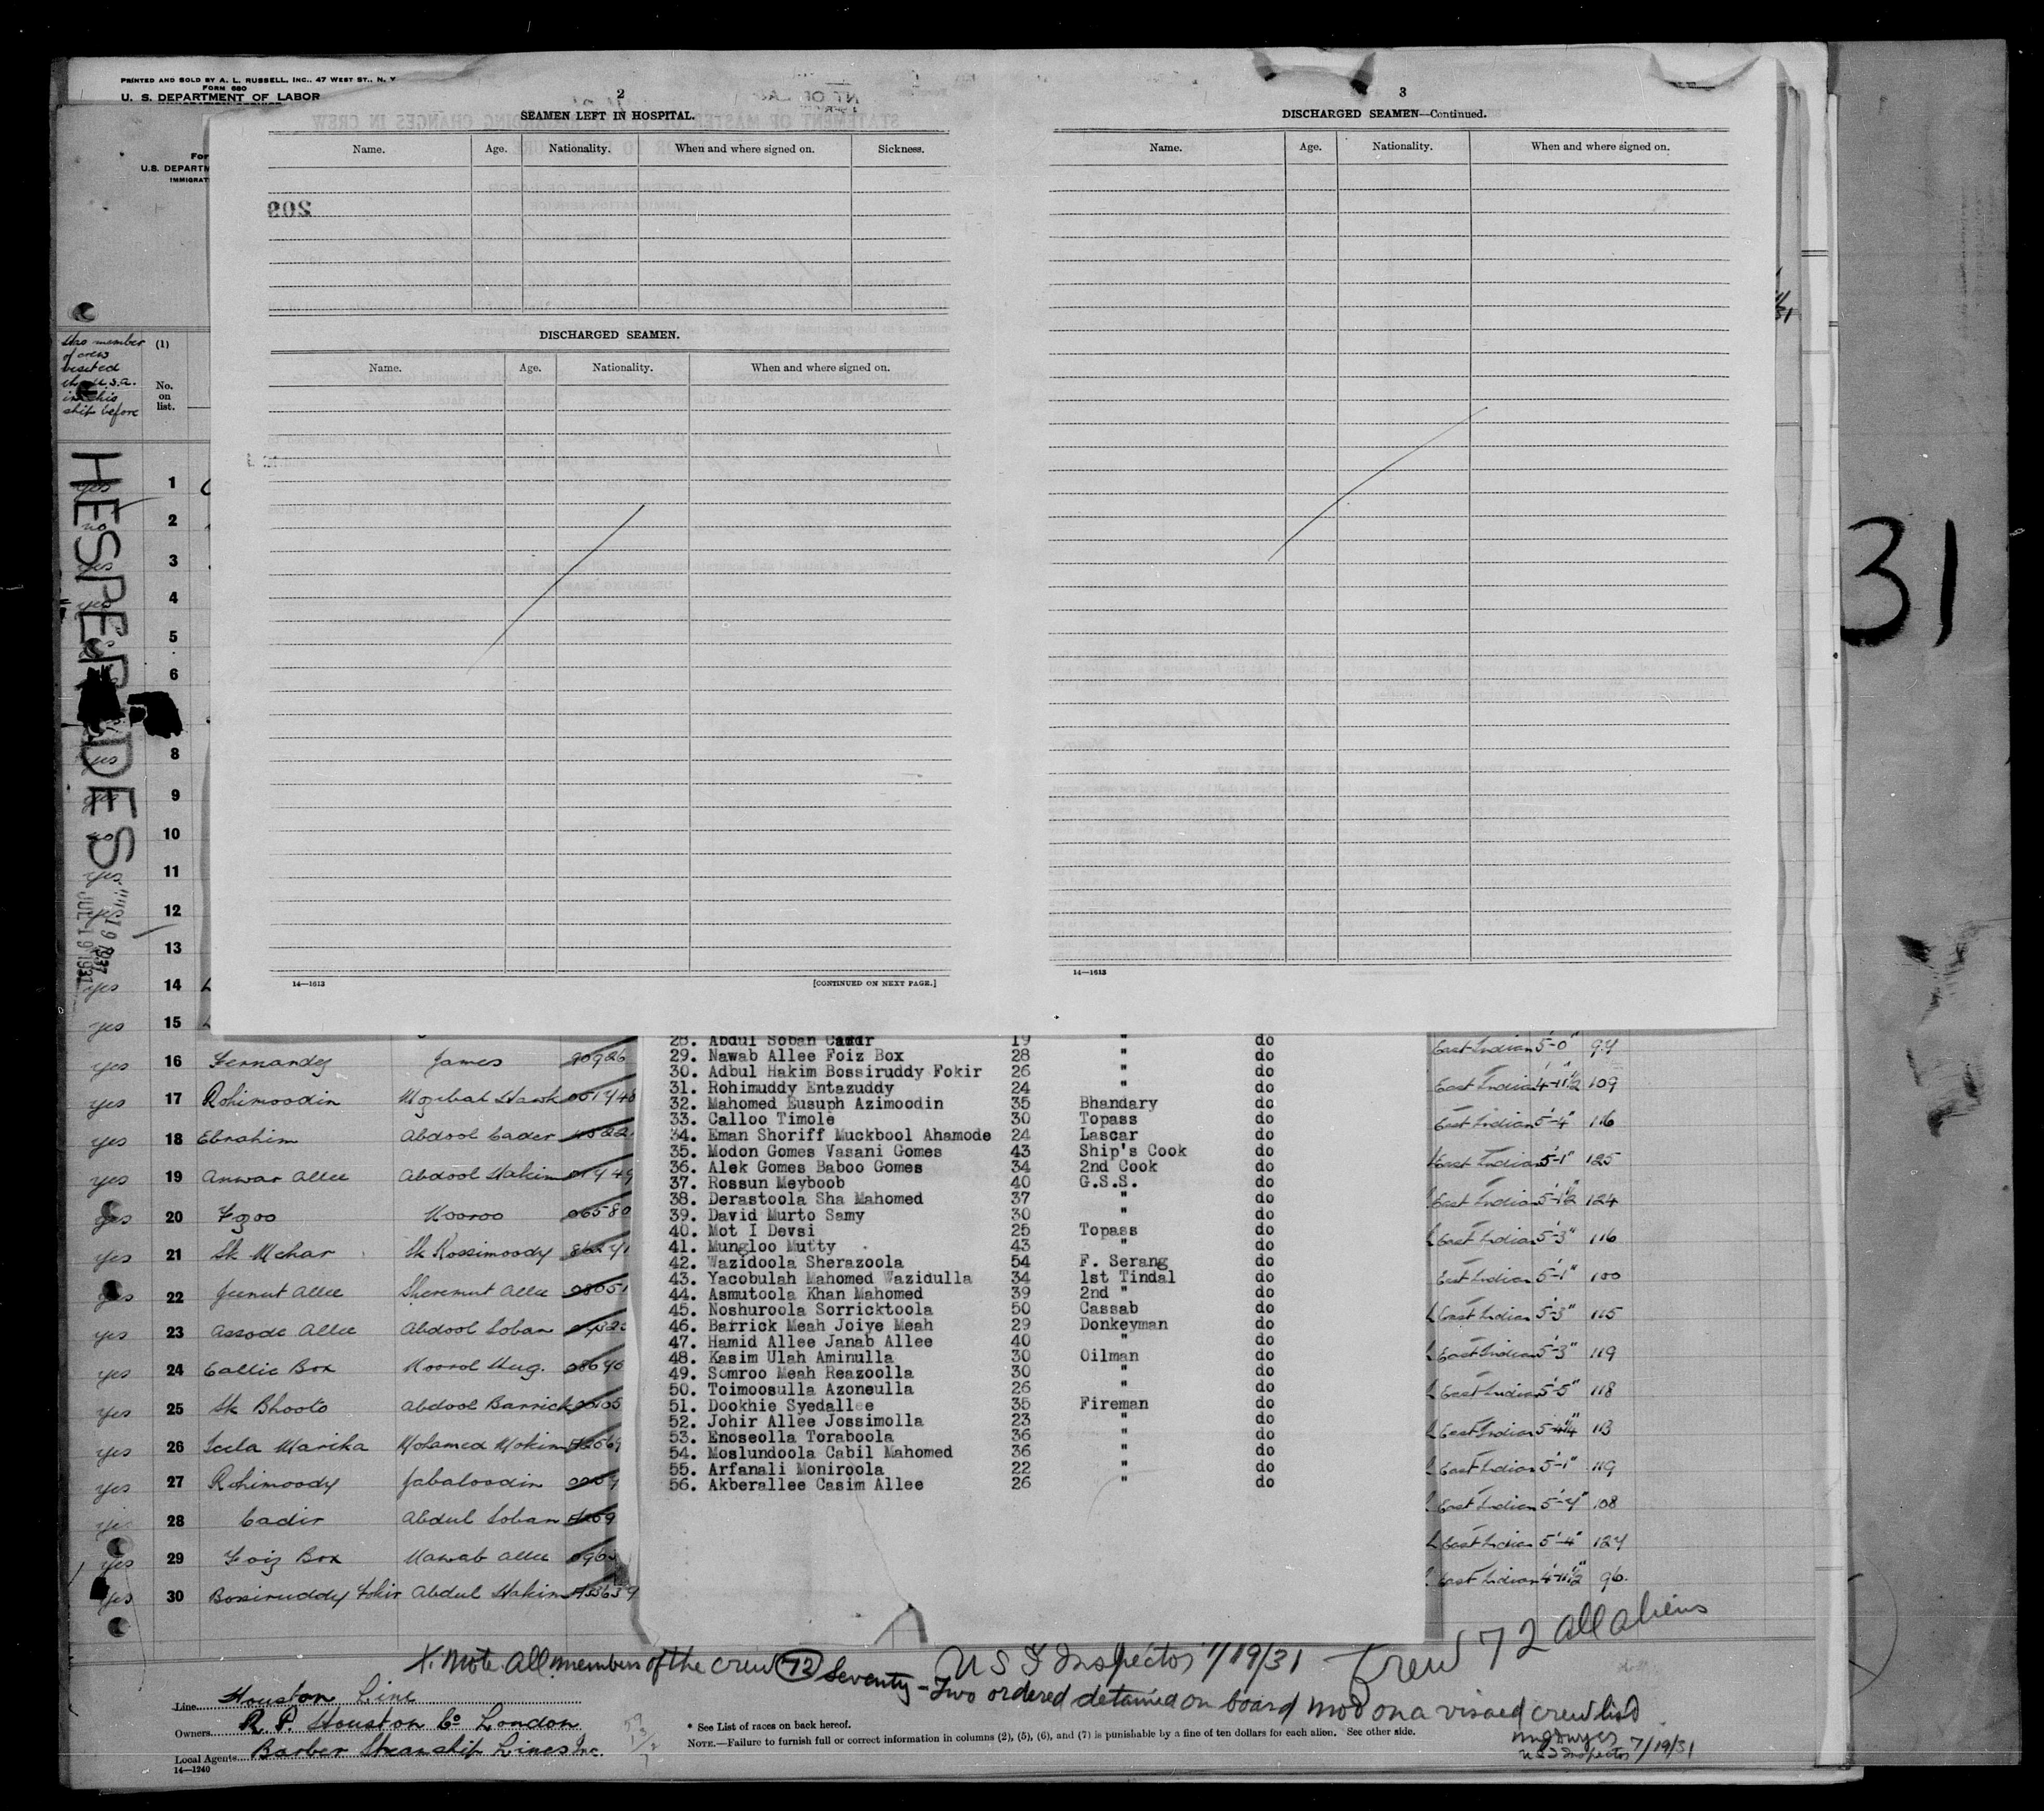 PRINTED AND SOLD BY A. L. RUSSELL, INC., 47 WEST ST., N. Y
FORM 680
U. S. DEPARTMENT OF LABOR
2
SEAMEN LEFT IN HOSPITAL.
Name. Age. Nationality. When and where signed on. Sickness.
DISCHARGED SEAMEN.
Name. Age. Nationality. When and where signed on.
14—1613 [CONTINUED ON NEXT PAGE.]
3
DISCHARGED SEAMEN—Continued.
Name. Age. Nationality. When and where signed on.
14—1613
31
For
U.S. DEPARTM
IMMIGRAT
member
of crew
visited
the U.S.A.
in this
ship before
(1)
No.
on
list.
HESPERIDES
JUL 19 1931
yes 1
no 2
yes 3
yes 4
5
6
yes 8
9
no 10
yes 11
yes 12
13
yes 14
yes 15
yes 16 Fernandez James 90926 East Indian 5'-0" 94
yes 17 Rohimoodin East Indian 4'-11½ 109
yes 18 Ebrahim Abdool Cader East Indian 5'-4" 116
yes 19 Anwar Allee Abdool Hakim East Indian 5'-1" 125
yes 20 Fozoo Nooroo 06580 East Indian 5'-1½ 124
yes 21 Sk Mehar Sk Rossimoody East Indian 5'-3" 116
yes 22 Jeenut Allee Sheremut Allee 08051 East Indian 5'-1" 100
yes 23 Assode Allee Abdool Soban East Indian 5'-3" 115
yes 24 Callie Box Noorol Hug. East Indian 5'-3" 119
yes 25 Sk Bhooto Abdool Barrick East Indian 5'-5" 118
yes 26 Seela Marika Mohamed Mokim East Indian 5'-4¼ 113
yes 27 Rohimoody Jabaloodin East Indian 5'-1" 119
yes 28 Cadir Abdul Soban East Indian 5'-4" 108
yes 29 Foiz Box Nawab Allee East Indian 5'-4" 124
yes 30 Bossiruddy Fokir Abdul Hakim East Indian 4'-11½ 96.
28. Abdul Soban Cadir 19 " do
29. Nawab Allee Foiz Box 28 " do
30. Adbul Hakim Bossiruddy Fokir 26 " do
31. Rohimuddy Entazuddy 24 " do
32. Mahomed Eusuph Azimoodin 35 Bhandary do
33. Calloo Timole 30 Topass do
34. Eman Shoriff Muckbool Ahamode 24 Lascar do
35. Modon Gomes Vasani Gomes 43 Ship's Cook do
36. Alek Gomes Baboo Gomes 34 2nd Cook do
37. Rossun Meyboob 40 G.S.S. do
38. Derastoola Sha Mahomed 37 " do
39. David Murto Samy 30 " do
40. Mot I Devsi 25 Topass do
41. Mungloo Mutty 43 " do
42. Wazidoola Sherazoola 54 F. Serang do
43. Yacobulah Mahomed Wazidulla 34 1st Tindal do
44. Asmutoola Khan Mahomed 39 2nd " do
45. Noshuroola Sorricktoola 50 Cassab do
46. Barrick Meah Joiye Meah 29 Donkeyman do
47. Hamid Allee Janab Allee 40 " do
48. Kasim Ulah Aminulla 30 Oilman do
49. Somroo Meah Reazoolla 30 " do
50. Toimoosulla Azoneulla 26 " do
51. Dookhie Syedallee 35 Fireman do
52. Johir Allee Jossimolla 23 " do
53. Enoseolla Toraboola 36 " do
54. Moslundoola Cabil Mahomed 36 " do
55. Arfanali Moniroola 22 " do
56. Akberallee Casim Allee 26 " do
Crew 72 all aliens
X. Note all members of the crew 72 Seventy-Two ordered detained on board not on a visaed crew list
U S I Inspector 7/19/31
U S I Inspector 7/19/31
Line Houston Line
Owners R. P. Houston Co London
Local Agents Barber Steamship Lines Inc.
14—1240
* See List of races on back hereof.
NOTE.—Failure to furnish full or correct information in columns (2), (5), (6), and (7) is punishable by a fine of ten dollars for each alien. See other side.